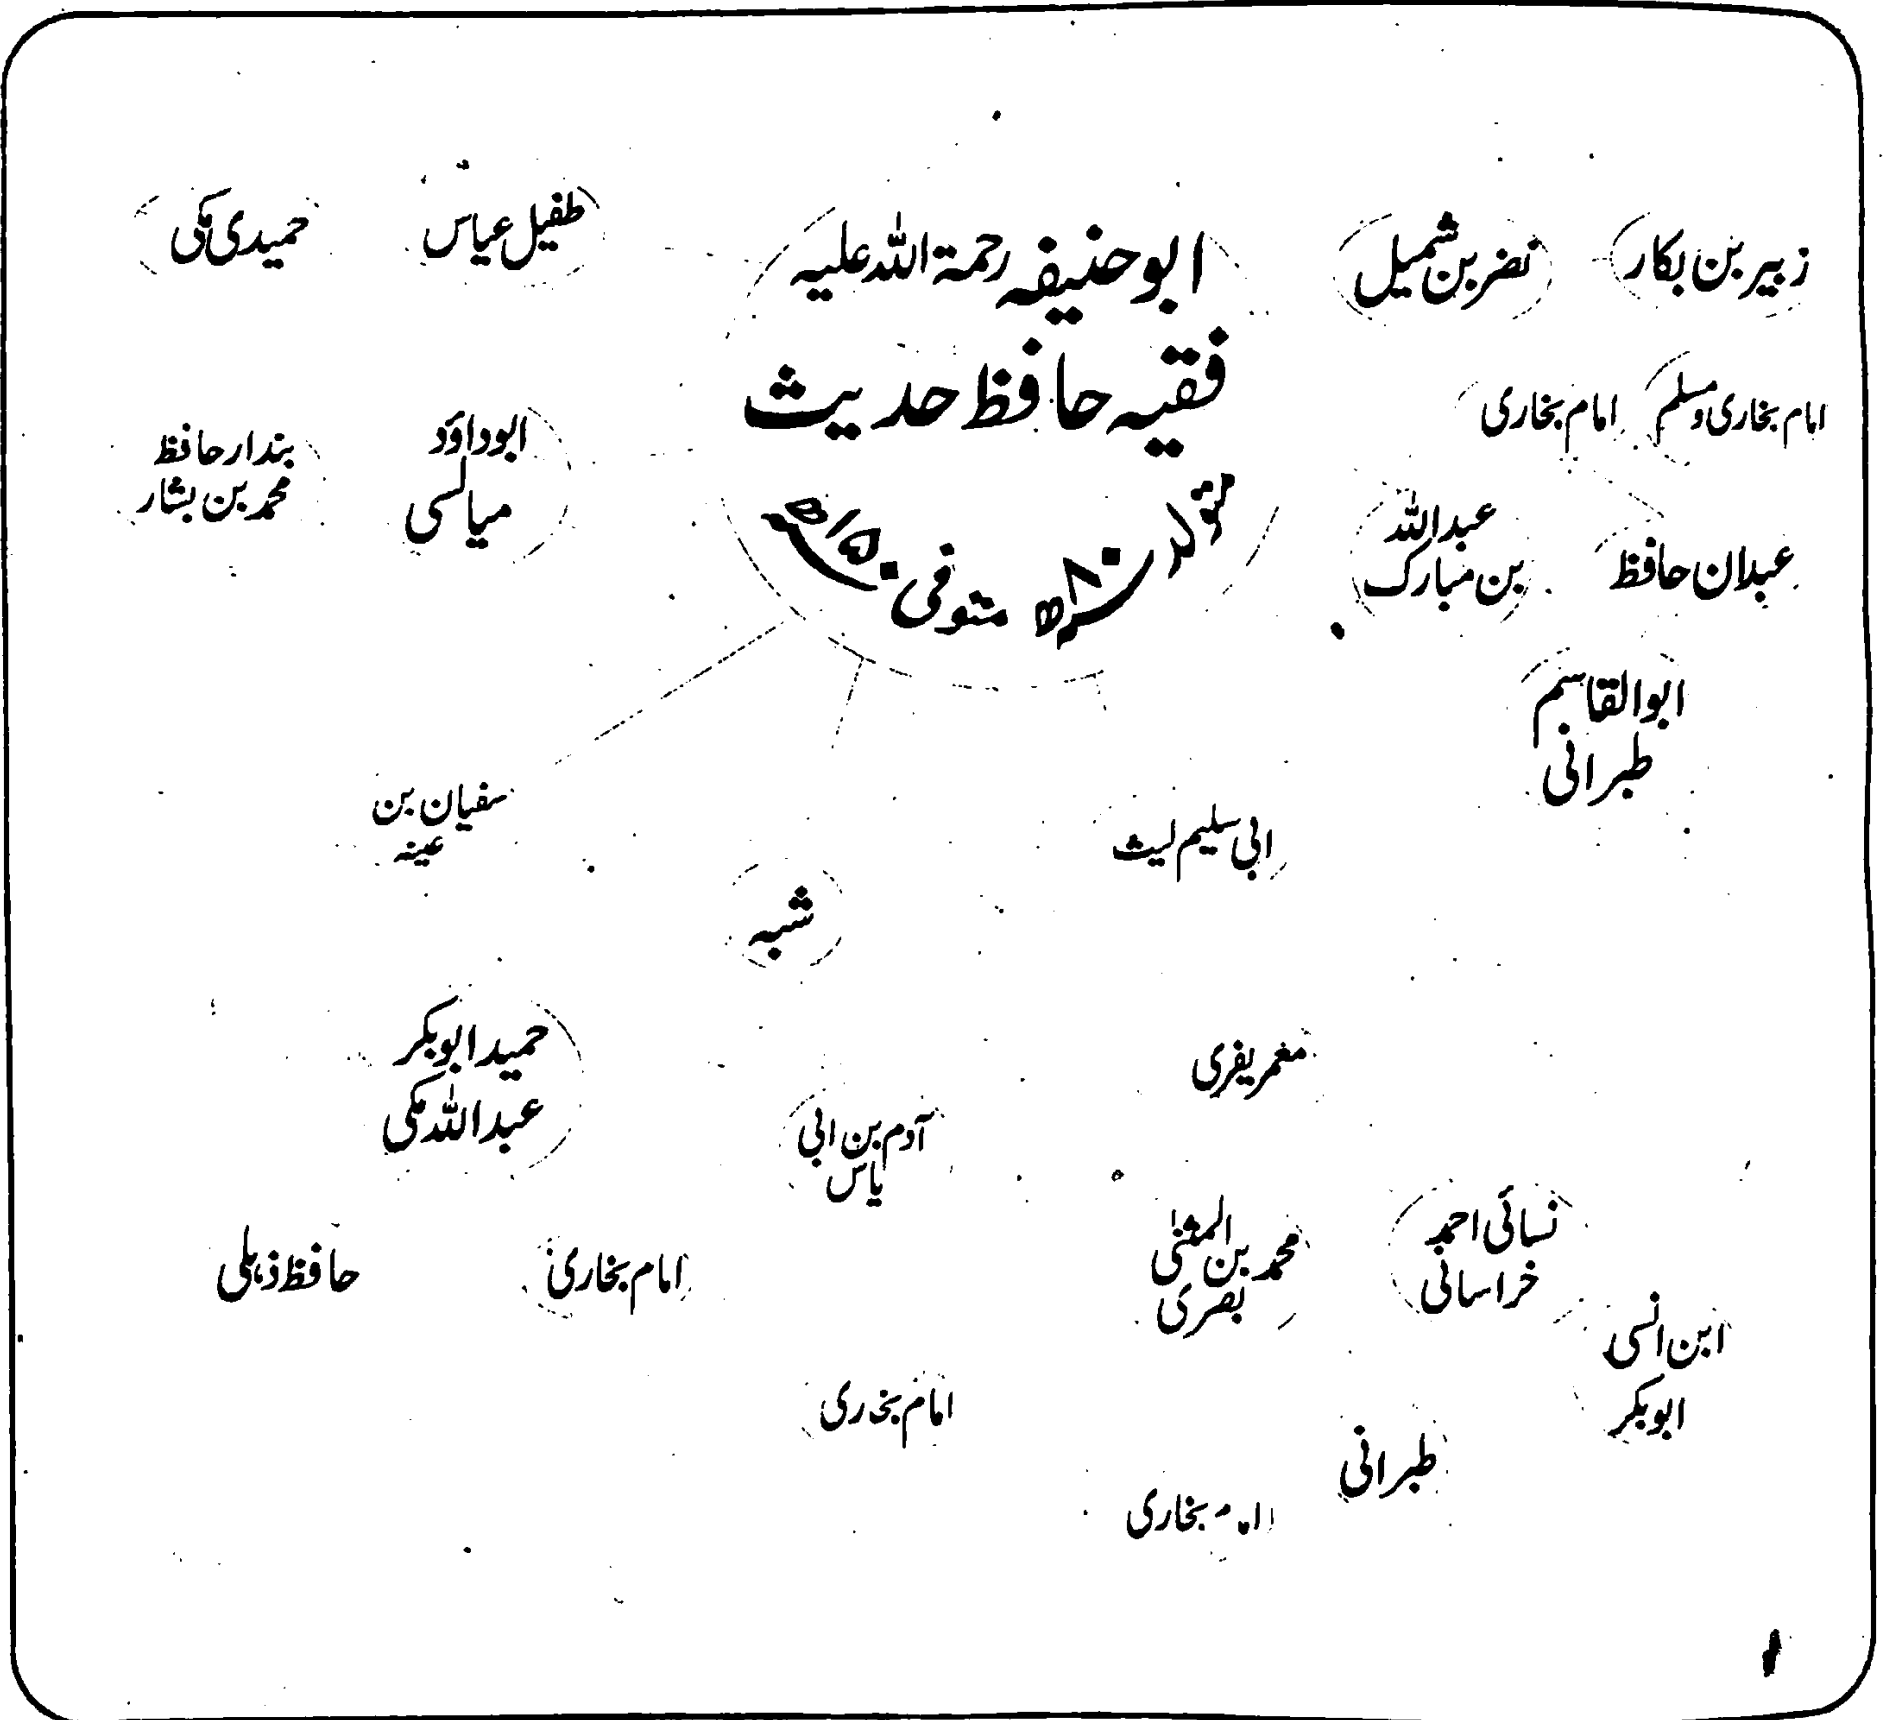 ابوحنیفہ رحمۃ اللہ علیہ
فقیہ حافظ حدیث
تولد سنہ ۸۰ھ متوفی سنہ ۱۵۰ھ
زبیر بن بکار
نضر بن شمیل
طفیل عیاس
حمیدی مکی
امام بخاری و مسلم
امام بخاری
ابوداؤد
میالسی
بندار حافظ
محمد بن بشار
عبداللہ
بن مبارک
عبدان حافظ
ابوالقاسم
طبرانی
سفیان بن
عینہ
ابی سلیم لیث
شبہ
حمید ابوبکر
عبداللہ مکی
مغمر یفری
آدم بن ابی
یاس
نسائی احمد
خراسانی
المثنی
محمد بن
بصری
امام بخاری
حافظ ذہلی
ابن انسی
ابوبکر
امام بخدری
طبرانی
امام بخاری